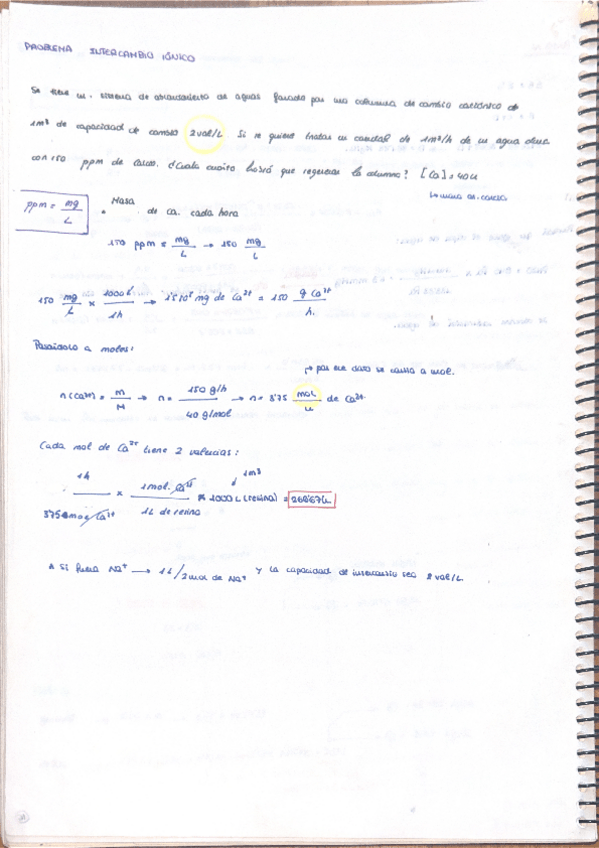 PROBLEMA INTERCAMBIO IÓNICO
Se tiene un sistema de ablandamiento de aguas formado por una columna de cambio catiónico de
1m³ de capacidad de cambio 2val/L. Si se quiere tratar un caudal de 1m³/h de un agua dura
con 150 ppm de calcio. ¿Cada cuánto habrá que regenerar la columna? [Ca] = 40u
ppm = mg/L
• Masa de Ca. cada hora
150 ppm = mg/L → 150 mg/L
150 mg/L × 1000L/1h → 1'5·10⁵ mg de Ca²⁺ = 150 g Ca²⁺/h.
Pasándolo a moles:
↱ por ese dato se pasa a mol.
n(Ca²⁺) = m/M → n = 150 g/h / 40 g/mol → n = 3'75 mol/h de Ca²⁺
Cada mol de Ca²⁺ tiene 2 valencias:
1h / 3'75 mol Ca²⁺ × 1mol Ca²⁺ / 1L de resina × 1000L (resina) = 266'67h
1m³
* Si fuera Na⁺ → 1L/2mol de Na⁺ y la capacidad de intercambio sea 2val/L.